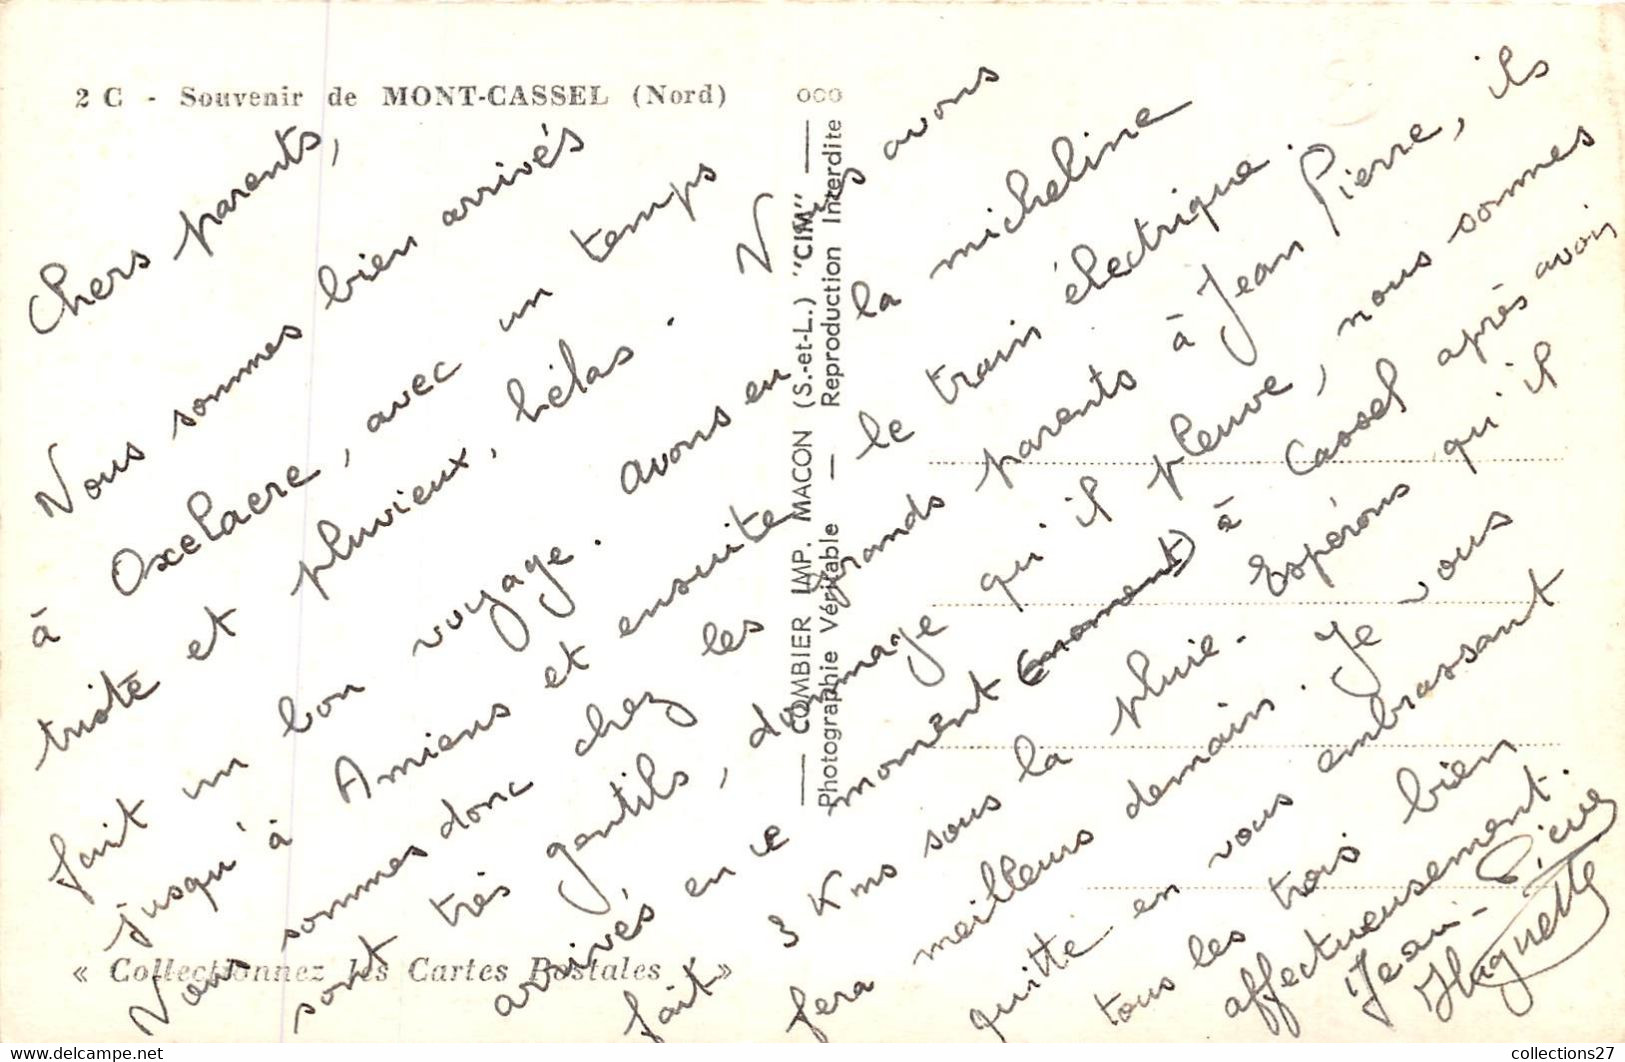 2 C - Souvenir de MONT-CASSEL (Nord)
Chers parents,
Nous sommes bien arrivés
à Oxelaere, avec un temps
triste et pluvieux, hélas. Nous avons
fait un bon voyage. avons en la micheline
jusqu'à Amiens et ensuite le train électrique.
Nous sommes donc chez les grands parents à Jean Pierre, ils
sont très gentils, dommage qu'il pleuve, nous sommes
arrivés en ce moment (moment) à Cassel après avoir
fait 3 Kms sous la pluie. Espérons qu'il
fera meilleurs demain. Je vous
quitte en vous embrassant
tous les trois bien
affectueusement.
Jean-Pierre
Huguette
COMBIER IMP. MACON (S.-et-L.) "CIM"
Photographie Véritable — Reproduction Interdite
« Collectionnez les Cartes Postales ! »
www.delcampe.net
collections27